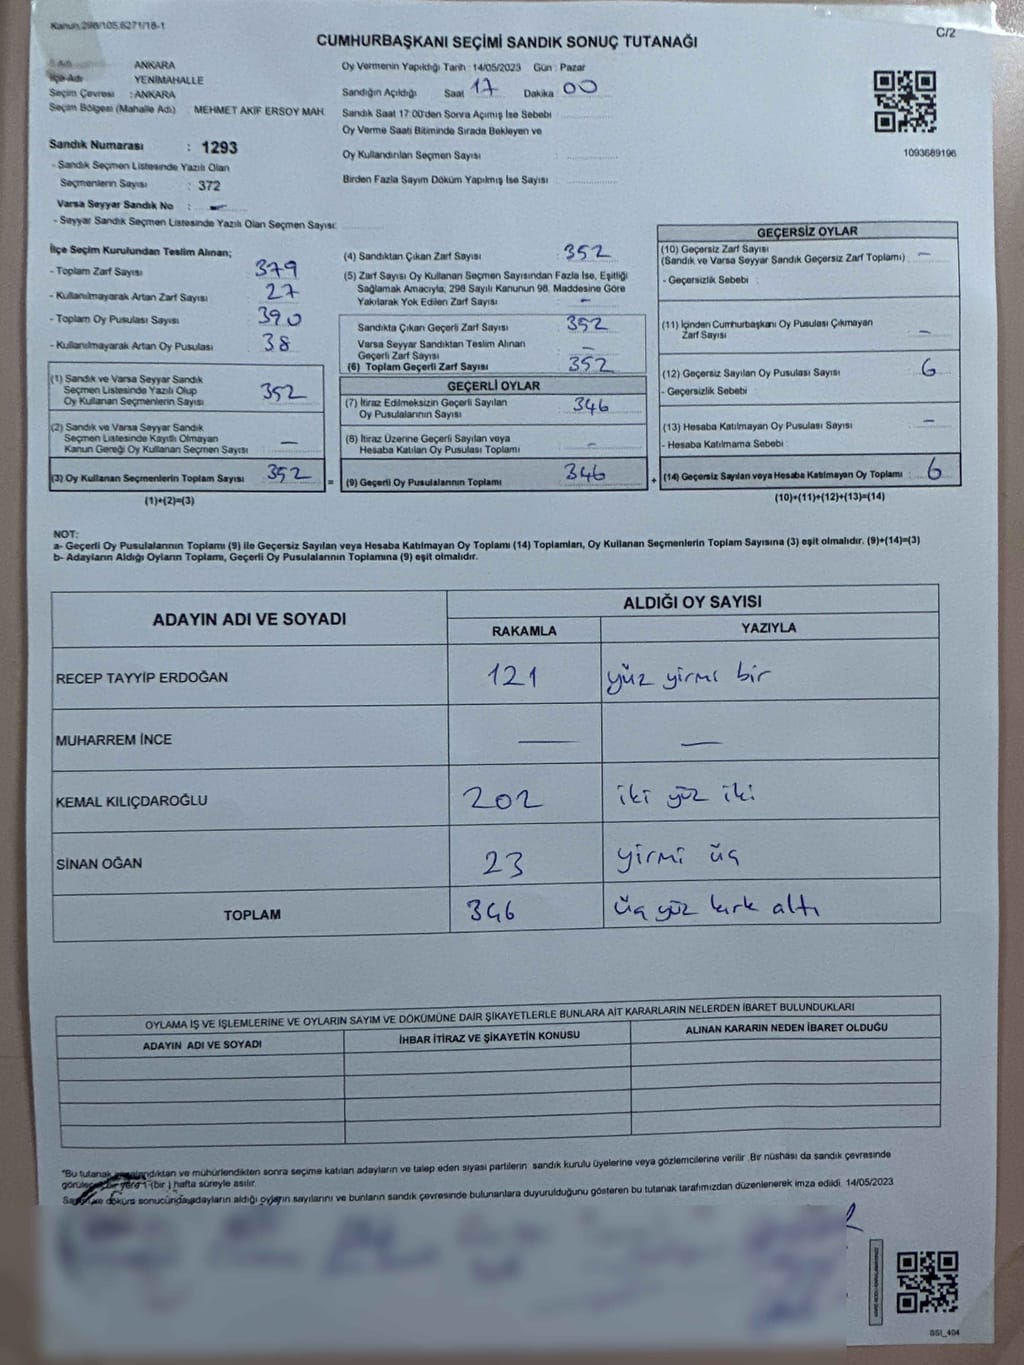 Kanun 298/105,6271/18-1
C/2
CUMHURBAŞKANI SEÇİMİ SANDIK SONUÇ TUTANAĞI
İl Adı ANKARA
İlçe Adı YENİMAHALLE
Seçim Çevresi : ANKARA
Seçim Bölgesi (Mahalle Adı) MEHMET AKİF ERSOY MAH.
Sandık Numarası : 1293
- Sandık Seçmen Listesinde Yazılı Olan
Seçmenlerin Sayısı : 372
Varsa Seyyar Sandık No : —
- Seyyar Sandık Seçmen Listesinde Yazılı Olan Seçmen Sayısı:
Oy Vermenin Yapıldığı Tarih : 14/05/2023 Gün : Pazar
Sandığın Açıldığı Saat 17 Dakika 00
Sandık Saat 17:00'den Sonra Açımış İse Sebebi
Oy Verme Saati Bitiminde Sırada Bekleyen ve
Oy Kullandırılan Seçmen Sayısı :
Birden Fazla Sayım Döküm Yapılmış İse Sayısı :
1093689196
İlçe Seçim Kurulundan Teslim Alınan;
- Toplam Zarf Sayısı 379
- Kullanılmayarak Artan Zarf Sayısı 27
- Toplam Oy Pusulası Sayısı 390
- Kullanılmayarak Artan Oy Pusulası 38
(1) Sandık ve Varsa Seyyar Sandık
Seçmen Listesinde Yazılı Olup
Oy Kullanan Seçmenlerin Sayısı 352
(2) Sandık ve Varsa Seyyar Sandık
Seçmen Listesinde Kayıtlı Olmayan
Kanun Gereği Oy Kullanan Seçmen Sayısı —
(3) Oy Kullanan Seçmenlerin Toplam Sayısı 352 =
(1)+(2)=(3)
(4) Sandıktan Çıkan Zarf Sayısı : 352
(5) Zarf Sayısı Oy Kullanan Seçmen Sayısından Fazla İse, Eşitliği
Sağlamak Amacıyla, 298 Sayılı Kanunun 98. Maddesine Göre
Yakılarak Yok Edilen Zarf Sayısı —
Sandıkta Çıkan Geçerli Zarf Sayısı 352
Varsa Seyyar Sandıktan Teslim Alınan
Geçerli Zarf Sayısı —
(6) Toplam Geçerli Zarf Sayısı 352
GEÇERLİ OYLAR
(7) İtiraz Edilmeksizin Geçerli Sayılan
Oy Pusulalarının Sayısı 346
(8) İtiraz Üzerine Geçerli Sayılan veya
Hesaba Katılan Oy Pusulası Toplamı —
(9) Geçerli Oy Pusulalarının Toplamı 346 +
GEÇERSİZ OYLAR
(10) Geçersiz Zarf Sayısı
(Sandık ve Varsa Seyyar Sandık Geçersiz Zarf Toplamı) —
- Geçersizlik Sebebi :
(11) İçinden Cumhurbaşkanı Oy Pusulası Çıkmayan
Zarf Sayısı —
(12) Geçersiz Sayılan Oy Pusulası Sayısı 6
- Geçersizlik Sebebi :
(13) Hesaba Katılmayan Oy Pusulası Sayısı —
- Hesaba Katılmama Sebebi :
(14) Geçersiz Sayılan veya Hesaba Katılmayan Oy Toplamı : 6
(10)+(11)+(12)+(13)=(14)
NOT:
a- Geçerli Oy Pusulalarının Toplamı (9) ile Geçersiz Sayılan veya Hesaba Katılmayan Oy Toplamı (14) Toplamları, Oy Kullanan Seçmenlerin Toplam Sayısına (3) eşit olmalıdır. (9)+(14)=(3)
b- Adayların Aldığı Oyların Toplamı, Geçerli Oy Pusulalarının Toplamına (9) eşit olmalıdır.
ADAYIN ADI VE SOYADI ALDIĞI OY SAYISI
RAKAMLA YAZIYLA
RECEP TAYYİP ERDOĞAN 121 yüz yirmi bir
MUHARREM İNCE — —
KEMAL KILIÇDAROĞLU 202 iki yüz iki
SİNAN OĞAN 23 yirmi üç
TOPLAM 346 üç yüz kırk altı
OYLAMA İŞ VE İŞLEMLERİNE VE OYLARIN SAYIM VE DÖKÜMÜNE DAİR ŞİKAYETLERLE BUNLARA AİT KARARLARIN NELERDEN İBARET BULUNDUKLARI
ADAYIN ADI VE SOYADI İHBAR İTİRAZ VE ŞİKAYETİN KONUSU ALINAN KARARIN NEDEN İBARET OLDUĞU
*Bu tutanak imzalandıktan ve mühürlendikten sonra seçime katılan adayların ve talep eden siyasi partilerin sandık kurulu üyelerine veya gözlemcilerine verilir. Bir nüshası da sandık çevresinde
görülecek bir yere 1 (bir ) hafta süreyle asılır.
Sayım ve döküm sonucunda adayların aldığı oyların sayılarını ve bunların sandık çevresinde bulunanlara duyurulduğunu gösteren bu tutanak tarafımızdan düzenlenerek imza edildi. 14/05/2023